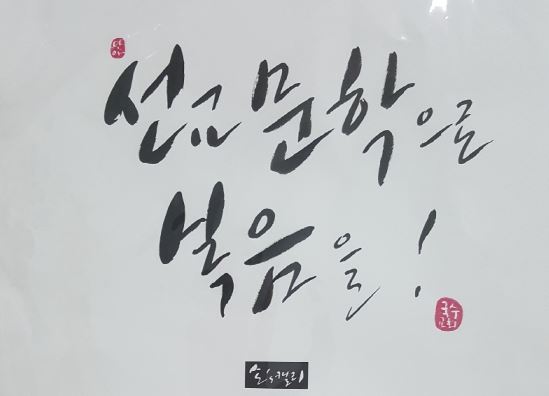 선교문학으로
복음을!